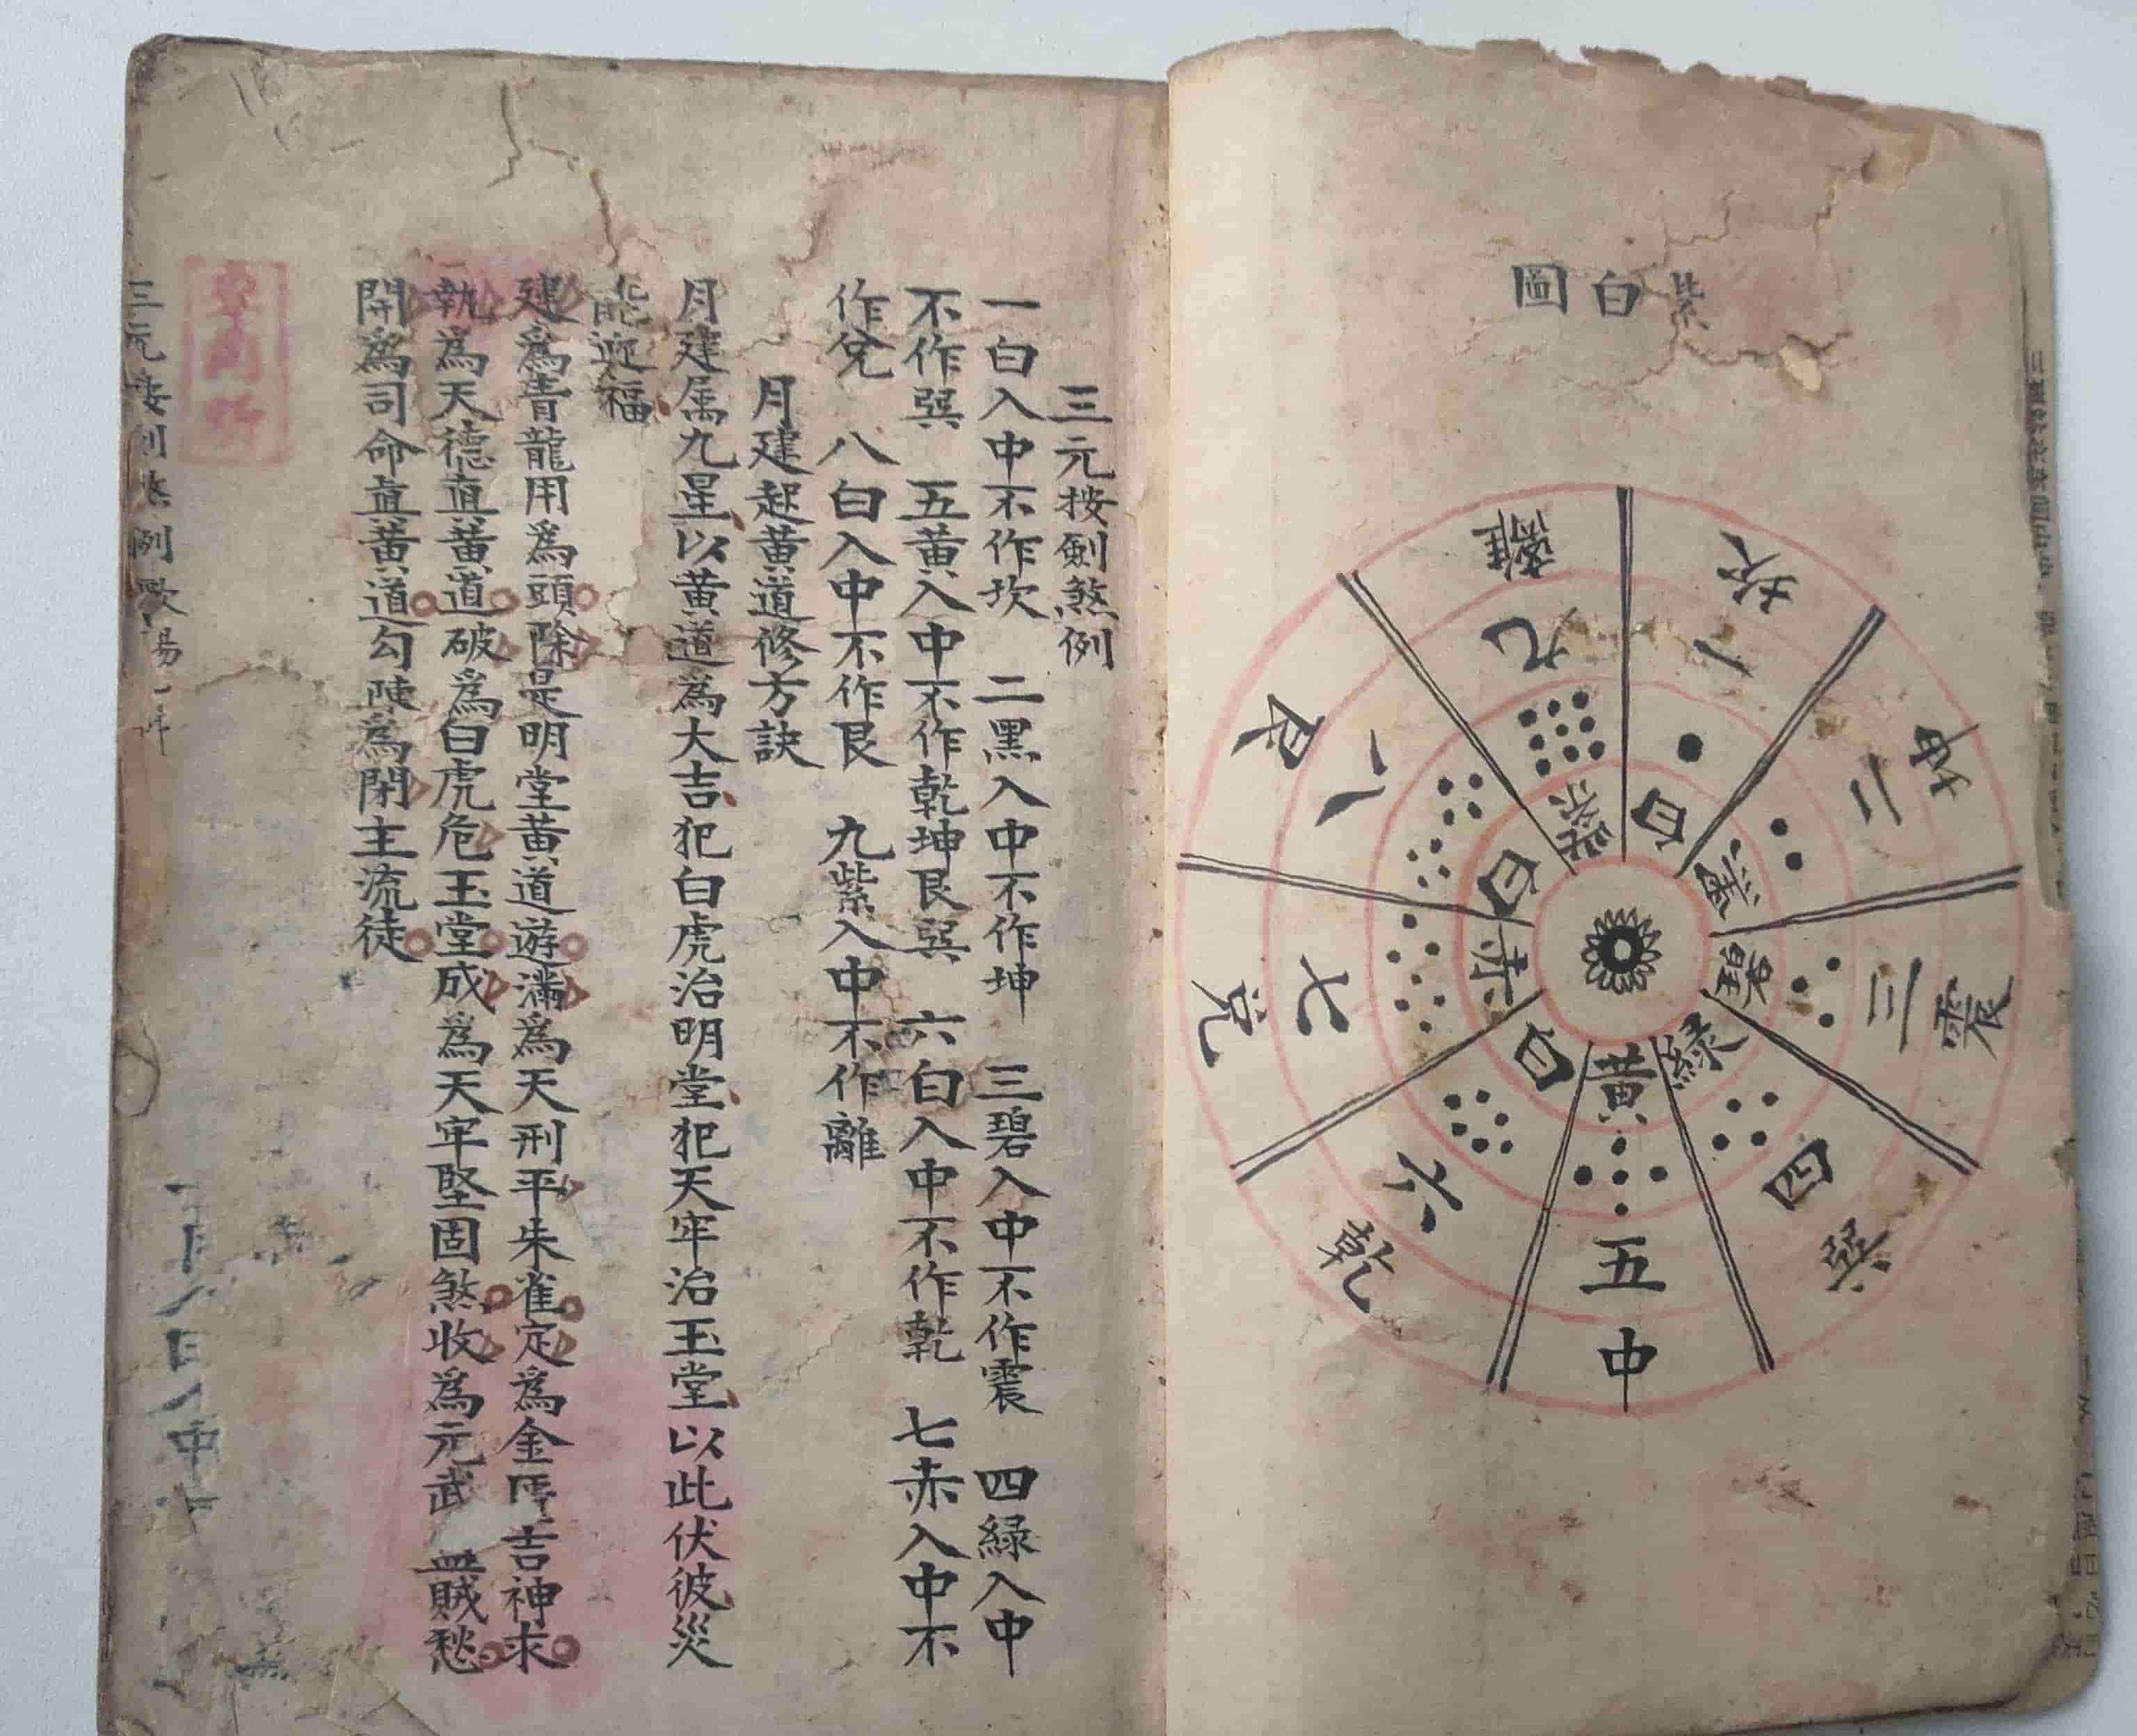 紫白圖
離 九 紫
坎 一 白
坤 二 黑
震 三 碧
巽 四 綠
中 五 黃
乾 六 白
兌 七 赤
艮 八 白
三元按劍煞例
一白入中不作坎 二黑入中不作坤 三碧入中不作震 四綠入中
不作巽 五黃入中不作乾坤艮巽 六白入中不作乾 七赤入中不
作兌 八白入中不作艮 九紫入中不作離
月建起黃道修方訣
月建属九星以黃道為大吉犯白虎治明堂犯天牢治玉堂以此伏彼災
能迎福
建爲青龍用爲頭除是明堂黃道遊滿爲天刑平朱雀定爲金匱吉神求
執爲天德直黃道破爲白虎危玉堂成爲天牢堅固煞收爲元武 盗賊愁
開爲司命直黃道勾陳爲閉主流徒